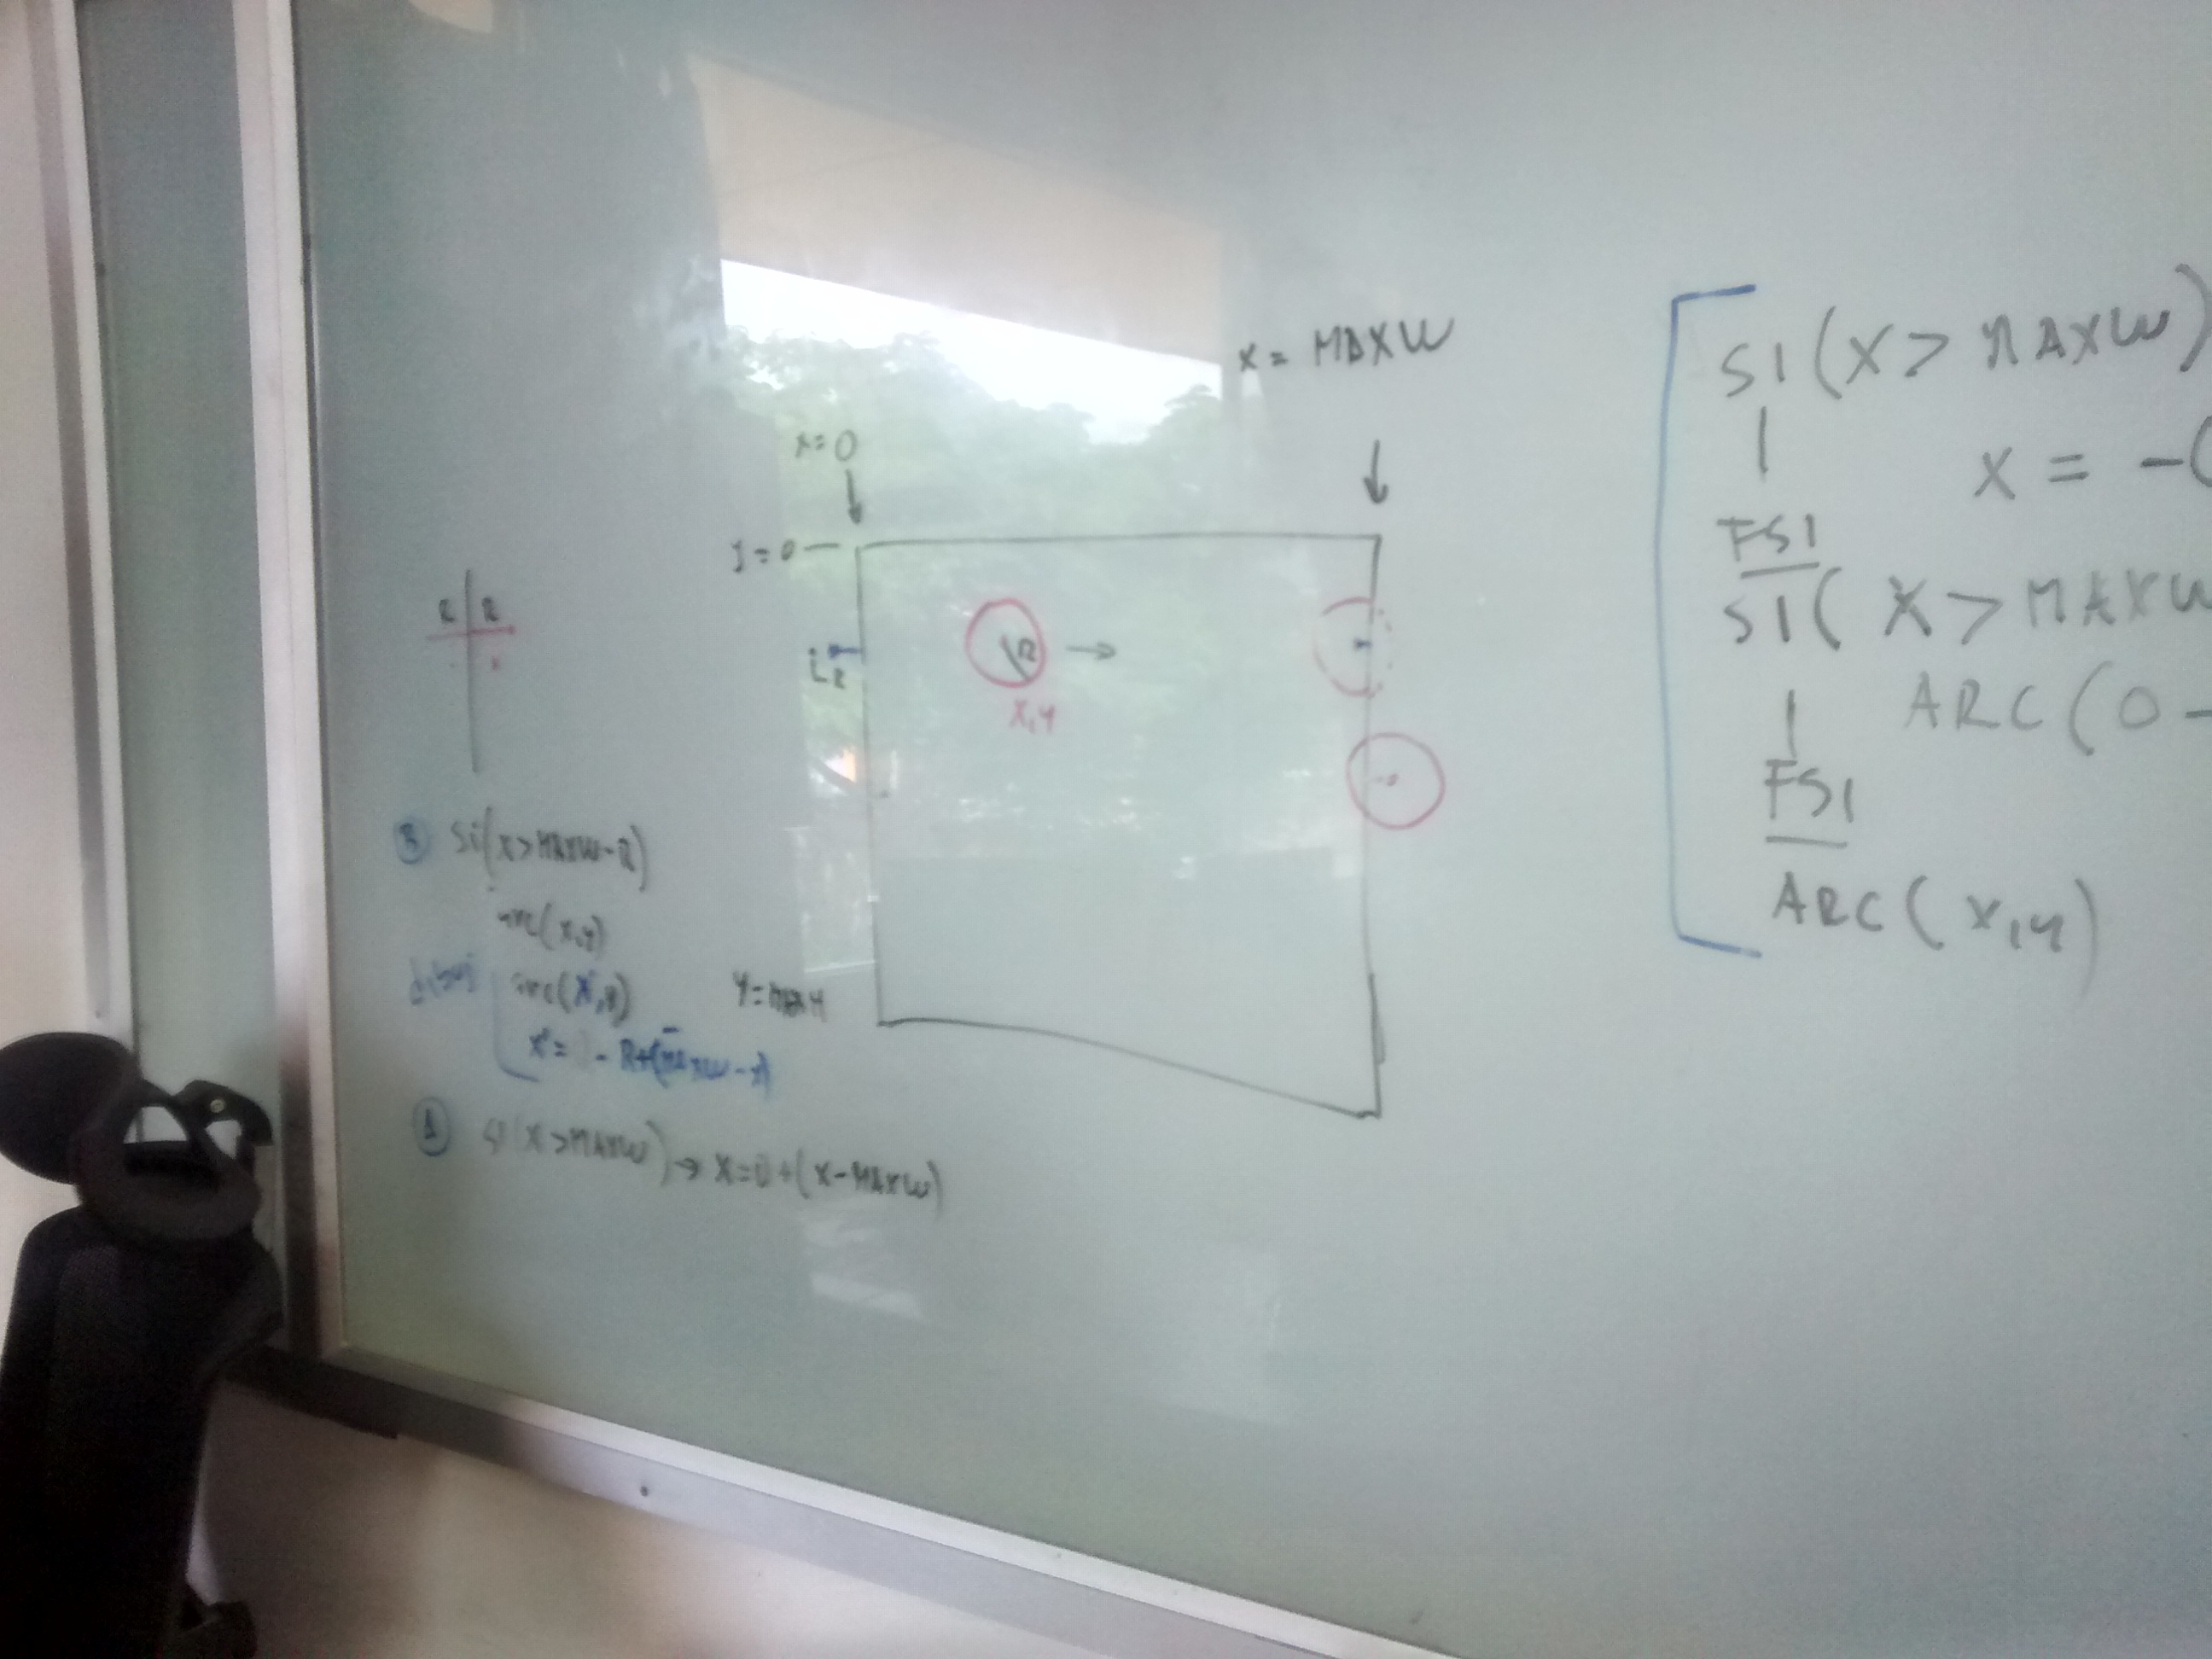 x = MAXW
x = 0
y = 0
R | R
R
R
x,y
B si(x>MAXW-R)
arc(x,y)
arc(x',y)
x' = - R+(MAXW-x)
y = MAXY
A si(x>MAXW) → x=0+(x-MAXW)
SI (X > MAXW)
X = -(
FSI
SI( X > MAXW
ARC(0-
FSI
ARC( x,y)